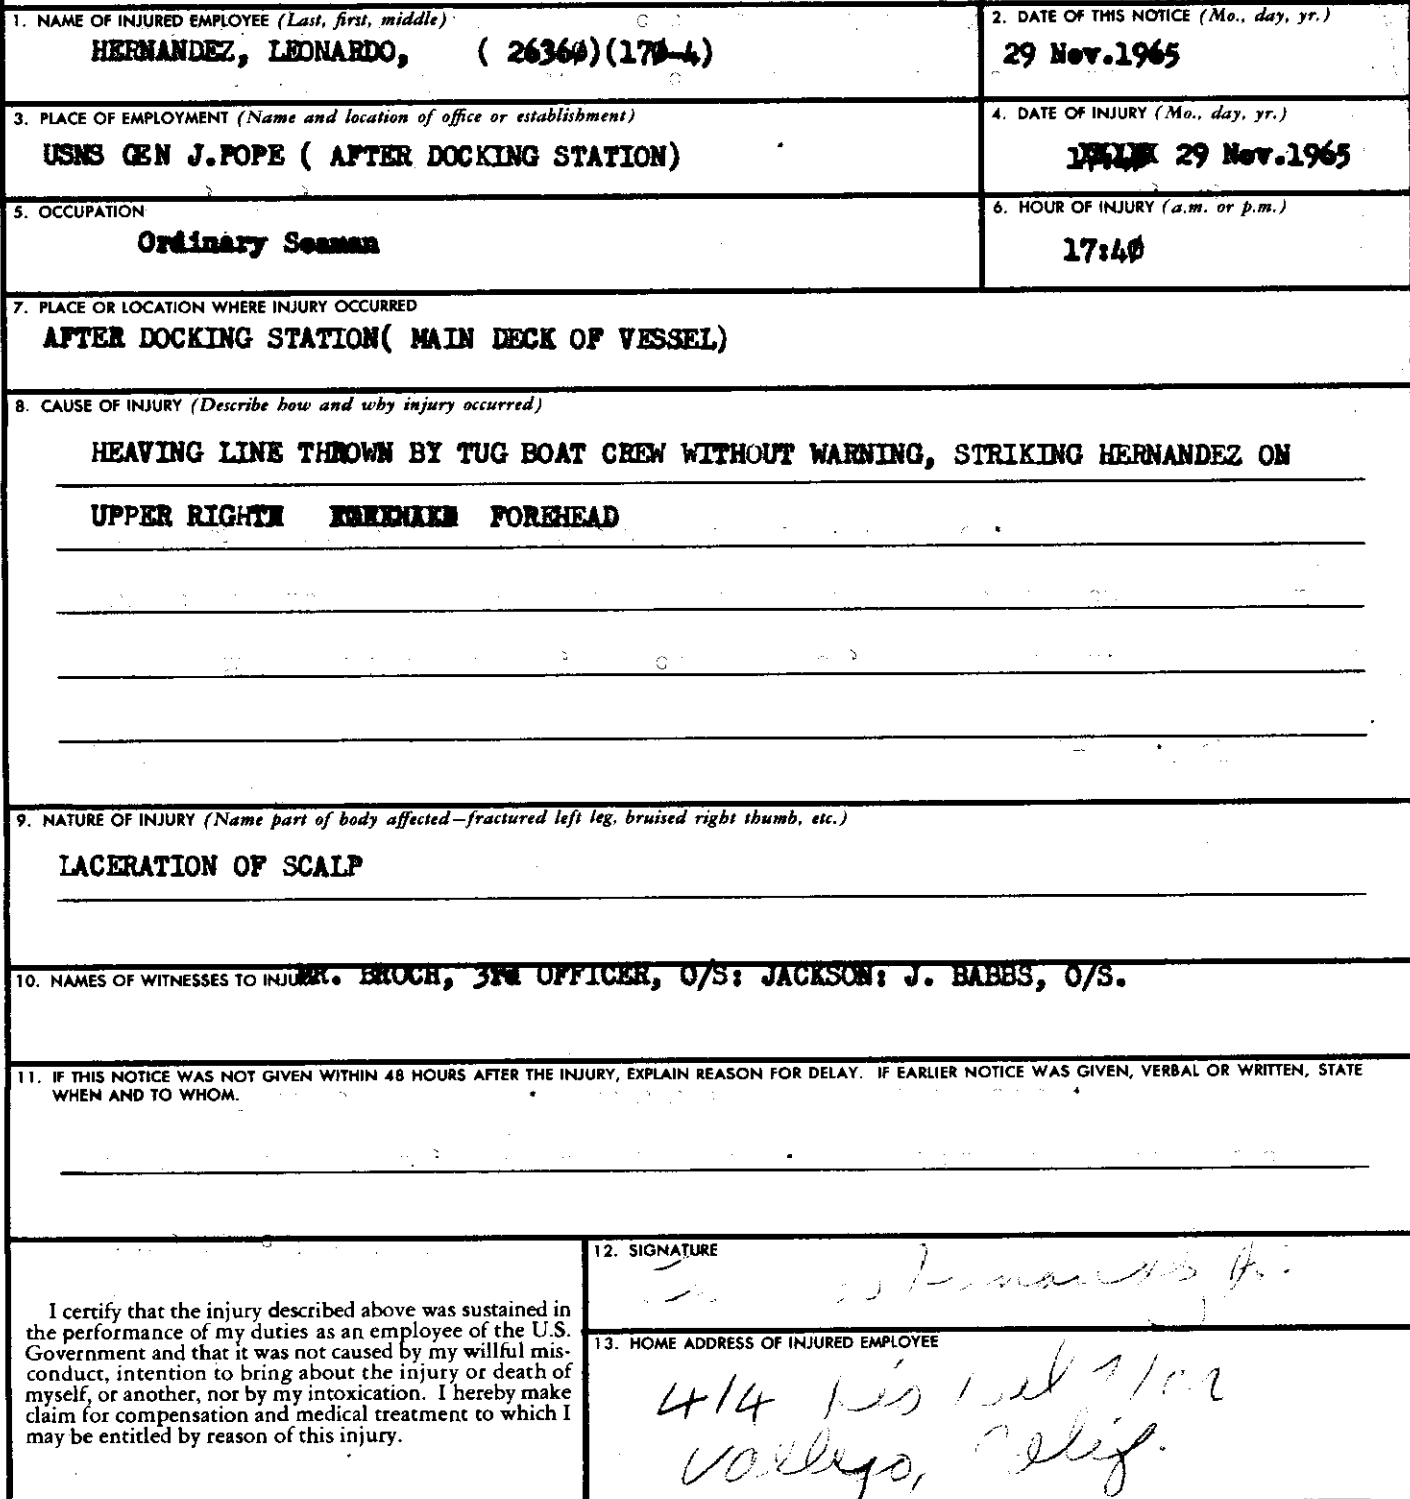 1. NAME OF INJURED EMPLOYEE (Last, first, middle)
HERNANDEZ, LEONARDO, ( 26360)(170-4)
2. DATE OF THIS NOTICE (Mo., day, yr.)
29 Nov.1965
3. PLACE OF EMPLOYMENT (Name and location of office or establishment)
USNS GEN J.POPE ( AFTER DOCKING STATION)
4. DATE OF INJURY (Mo., day, yr.)
29 Nov.1965
5. OCCUPATION
Ordinary Seaman
6. HOUR OF INJURY (a.m. or p.m.)
17:40
7. PLACE OR LOCATION WHERE INJURY OCCURRED
AFTER DOCKING STATION( MAIN DECK OF VESSEL)
8. CAUSE OF INJURY (Describe how and why injury occurred)
HEAVING LINE THROWN BY TUG BOAT CREW WITHOUT WARNING, STRIKING HERNANDEZ ON
UPPER RIGHT FOREHEAD
9. NATURE OF INJURY (Name part of body affected—fractured left leg, bruised right thumb, etc.)
LACERATION OF SCALP
10. NAMES OF WITNESSES TO INJURY
BROCH, 3rd OFFICER, O/S: JACKSON: J. BABBS, O/S.
11. IF THIS NOTICE WAS NOT GIVEN WITHIN 48 HOURS AFTER THE INJURY, EXPLAIN REASON FOR DELAY. IF EARLIER NOTICE WAS GIVEN, VERBAL OR WRITTEN, STATE
WHEN AND TO WHOM.
I certify that the injury described above was sustained in
the performance of my duties as an employee of the U.S.
Government and that it was not caused by my willful mis-
conduct, intention to bring about the injury or death of
myself, or another, nor by my intoxication. I hereby make
claim for compensation and medical treatment to which I
may be entitled by reason of this injury.
12. SIGNATURE
13. HOME ADDRESS OF INJURED EMPLOYEE
414
Vallejo, Calif.